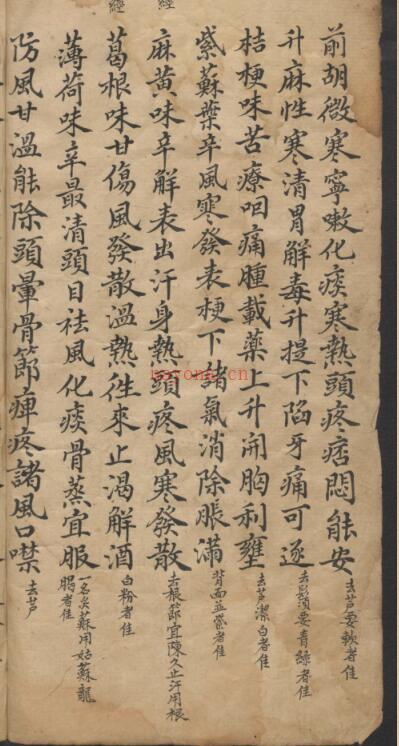 經
經
前胡微寒寧嗽化痰寒熱頭疼痞悶能安
去芦要軟者佳
升麻性寒清胃解毒升提下陷牙痛可逐
去鬚要青綠者佳
桔梗味苦療咽痛腫載藥上升開胸利壅
去芦潔白者佳
紫蘇葉辛風寒發表梗下諸氣消除脹滿
背面並紫者佳
麻黃味辛解表出汗身熱頭疼風寒發散
去根節宜陳久止汗用根
葛根味甘傷風發散溫熱徃來止渴解酒
白粉者佳
薄荷味辛最清頭目祛風化痰骨蒸宜服
一名炎蘇用姑蘇龍
腦者佳
防風甘溫能除頭暈骨節痺疼諸風口噤
去芦